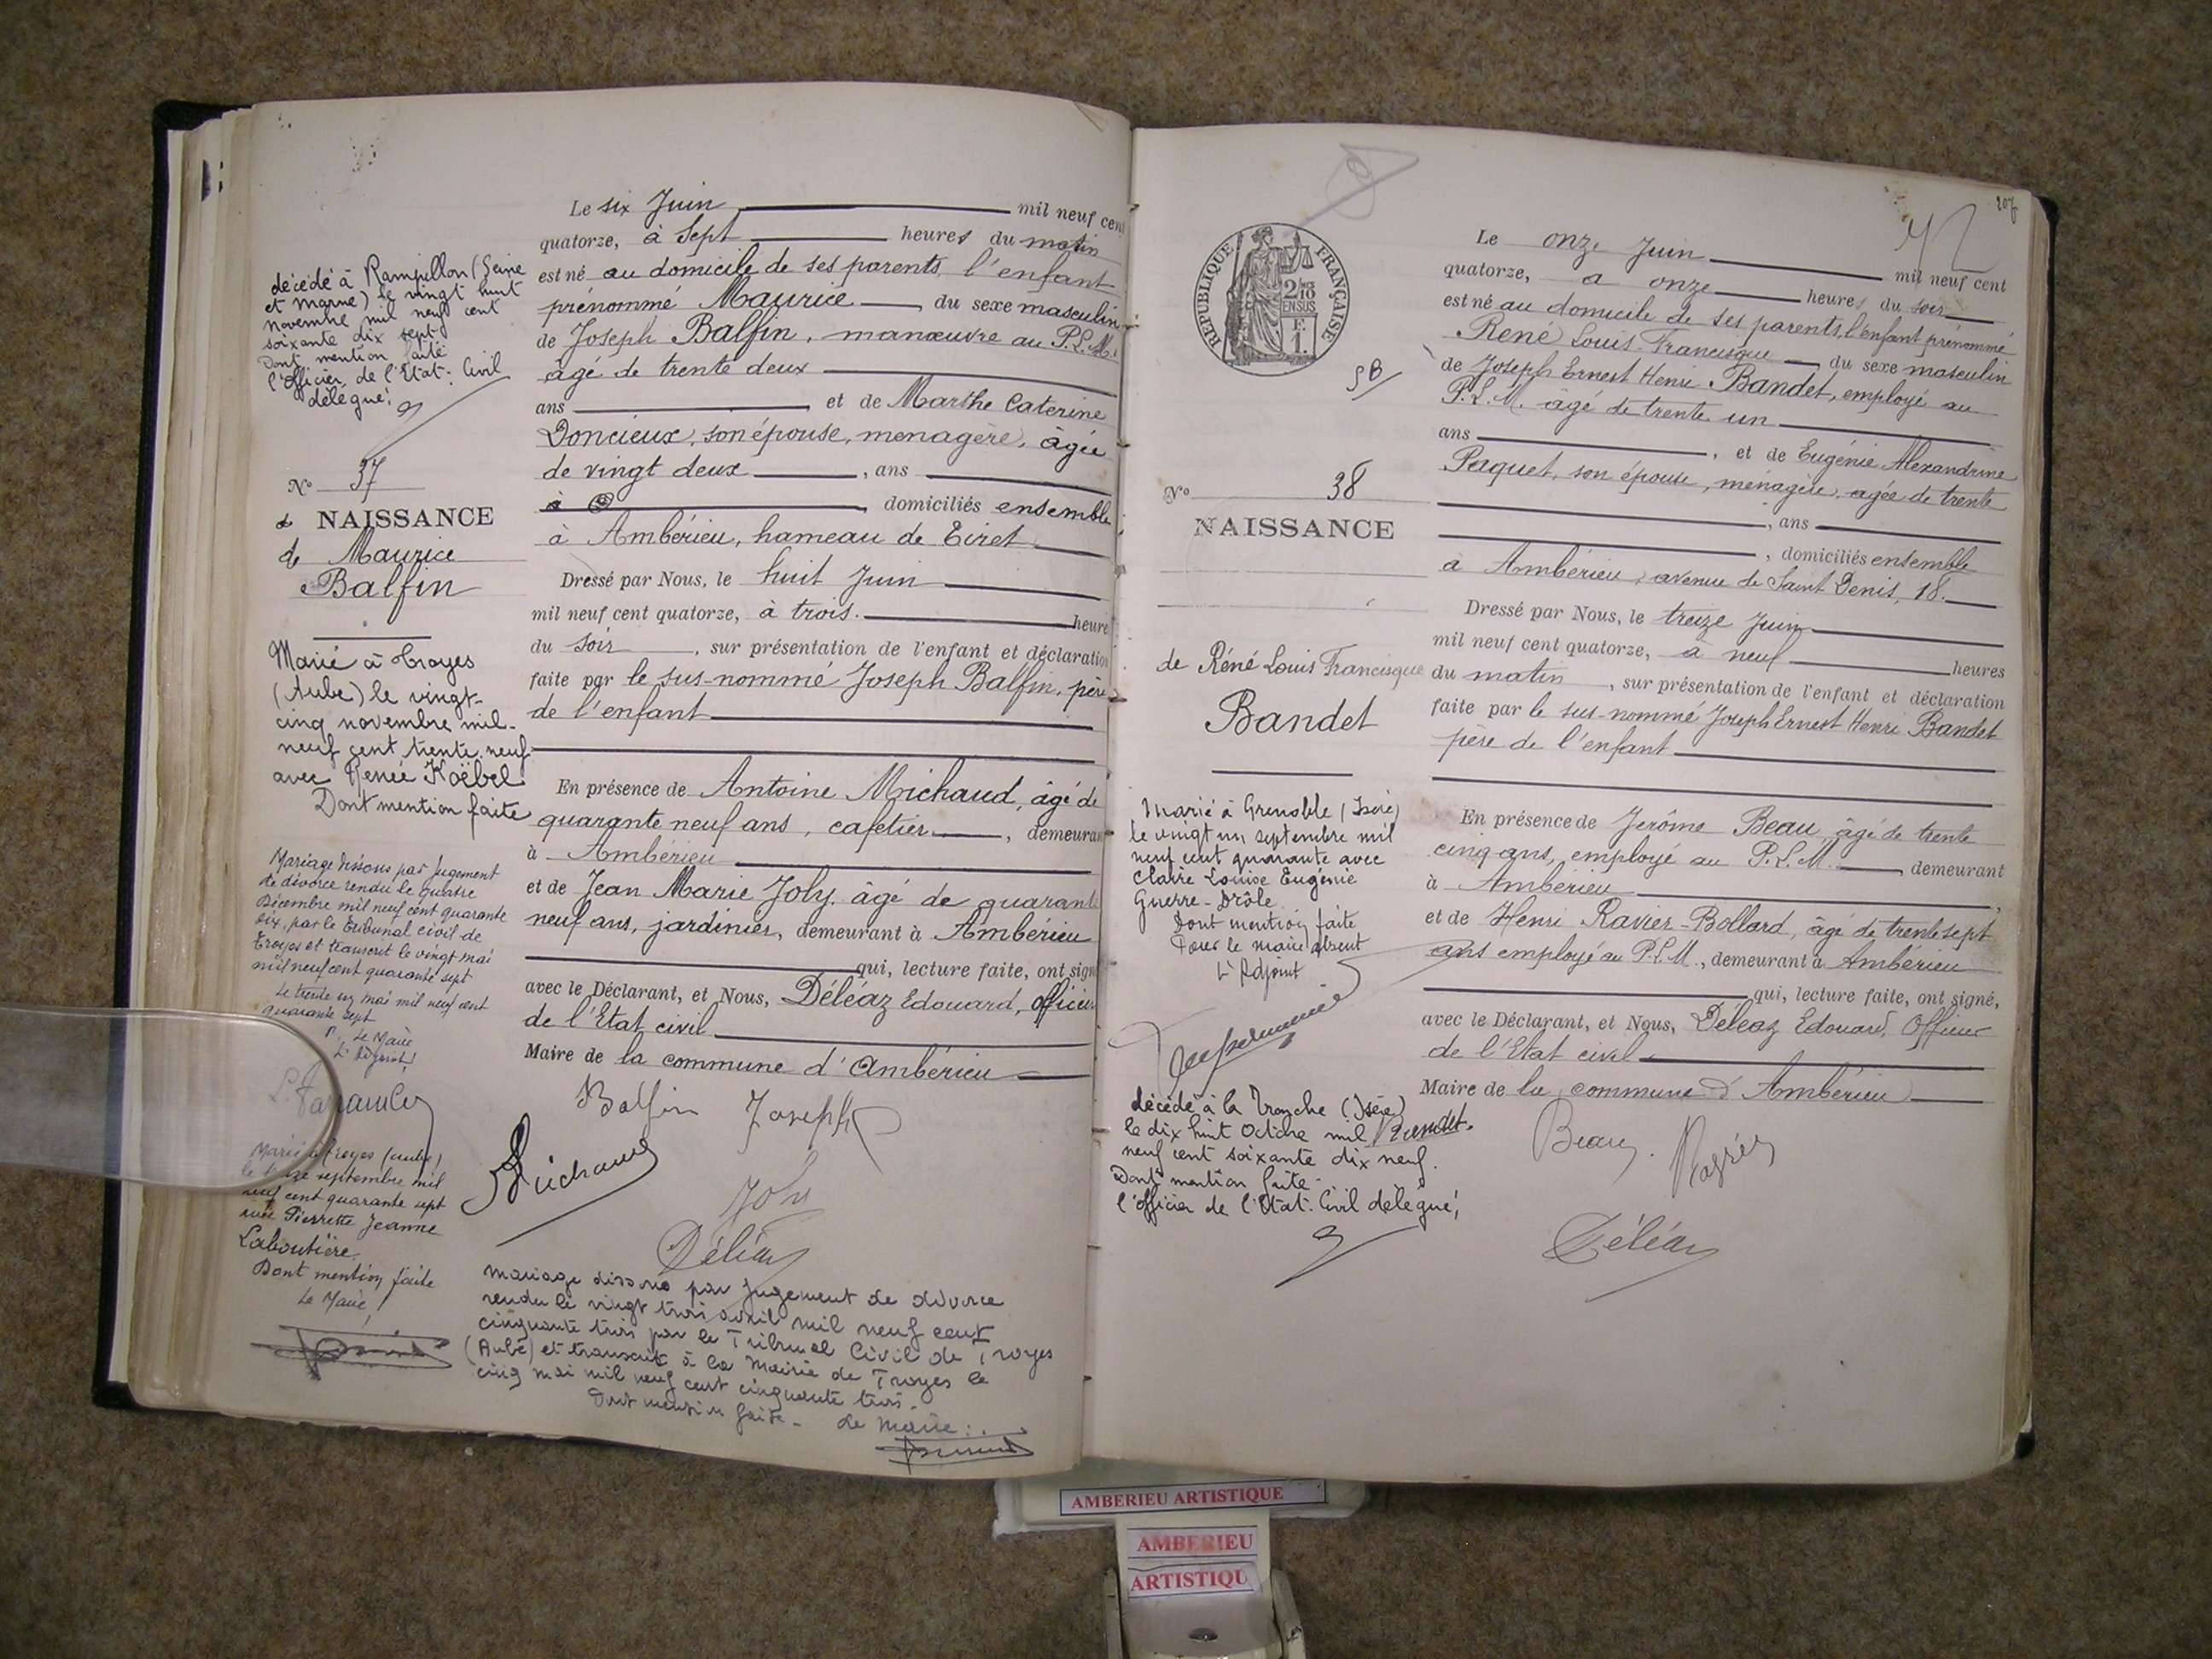 décédé à Rampillon (Seine
et Marne) le vingt huit
novembre mil neuf cent
soixante dix sept.
Dont mention faite
l'Officier de l'Etat-Civil
délégué,
N° 37
NAISSANCE
de Maurice
Balfin
Marié à Troyes
(Aube) le vingt-
cinq novembre mil-
neuf cent trente neuf
avec Renée Koëbel
Dont mention faite
Mariage dissous par Jugement
de divorce rendu le quatre
Décembre mil neuf cent quarante
six, par le Tribunal civil de
Troyes et transcrit le vingt mai
mil neuf cent quarante sept
Le trente un mai mil neuf cent
quarante sept
P. Le Maire
L'Adjoint,
Marié à Troyes (Aube)
le septembre mil
neuf cent quarante sept
avec Pierrette Jeanne
Laboutière
Dont mention faite
Le Maire,
Le six Juin mil neuf cent
quatorze, à sept heures du matin
est né au domicile de ses parents, l'enfant
prénommé Maurice du sexe masculin
de Joseph Balfin, manœuvre au P.L.M.
âgé de trente deux
ans et de Marthe Caterine
Doncieux, son épouse, menagère, âgée
de vingt deux, ans
à, domiciliés ensemble
à Ambérieu, hameau de Tiret
Dressé par Nous, le huit Juin
mil neuf cent quatorze, à trois heures
du soir, sur présentation de l'enfant et déclaration
faite par le sus-nommé Joseph Balfin, père
de l'enfant
En présence de Antoine Michaud, âgé de
quarante neuf ans, cafetier, demeurant
à Ambérieu
et de Jean Marie Joly, âgé de quarante
neuf ans, jardinier, demeurant à Ambérieu
qui, lecture faite, ont signé
avec le Déclarant, et Nous, Déléaz Edouard, Officier
de l'Etat civil
Maire de la commune d'Ambérieu
Balfin Joseph
Michaud
Joly
Déléaz
mariage dissous par Jugement de divorce
rendu le vingt trois avril mil neuf cent
cinquante trois par le Tribunal Civil de Troyes
(Aube) et transcrit à la Mairie de Troyes le
cinq mai mil neuf cent cinquante trois.
Dont mention faite - Le Maire:
207
REPUBLIQUE FRANÇAISE
2/10 EN SUS
1 F.
SB
N° 38
NAISSANCE
de Réné Louis Francisque
Bandet
Marié à Grenoble (Isère)
le vingt un septembre mil
neuf cent quarante avec
Claire Louise Eugénie
Guerre-Drôle
Dont mention faite
Pour le maire absent
L'Adjoint
décédé à la Tronche (Isère)
le dix huit Octobre mil
neuf cent soixante dix neuf.
Dont mention faite.
l'officier de l'Etat-Civil délégué,
Le onze Juin mil neuf cent
quatorze, à onze heures du soir
est né au domicile de ses parents, l'enfant prénommé
René Louis-Francisque du sexe masculin
de Joseph Ernest Henri Bandet, employé au
P.L.M. âgé de trente un
ans, et de Eugénie Alexandrine
Paquet, son épouse, ménagère, agée de trente
, ans
, domiciliés ensemble
à Ambérieu, avenue de Saint Denis, 18.
Dressé par Nous, le treize Juin
mil neuf cent quatorze, à neuf heures
du matin, sur présentation de l'enfant et déclaration
faite par le sus-nommé Joseph Ernest Henri Bandet
père de l'enfant
En présence de Jerôme Beau, âgé de trente
cinq ans, employé au P.L.M. demeurant
à Ambérieu,
et de Henri Ravier-Bollard, âgé de trente sept
ans employé au P.L.M., demeurant à Ambérieu
qui, lecture faite, ont signé,
avec le Déclarant, et Nous, Déléaz Edouard, Officier
de l'Etat civil
Maire de la commune d'Ambérieu
Bandet.
Beau
Ravier
Déléaz
AMBERIEU ARTISTIQUE
AMBERIEU
ARTISTIQU